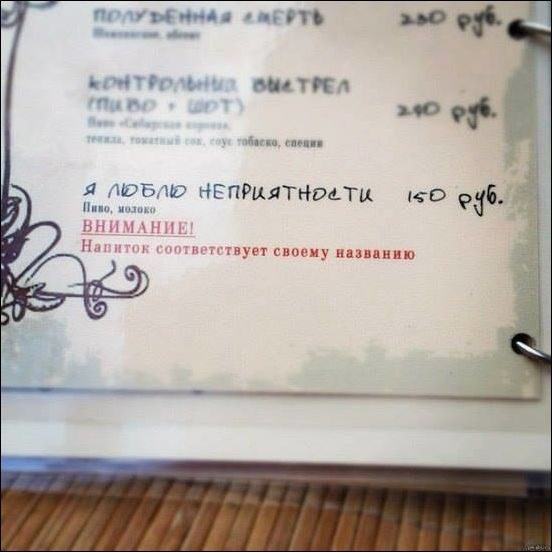 ПОЛУДЕННАЯ СМЕРТЬ 250 руб.
Шампанское, абсент
КОНТРОЛЬНЫЙ ВЫСТРЕЛ
(ПИВО + ШОТ) 290 руб.
Пиво «Сибирская корона»,
текила, томатный сок, соус тобаско, специи
Я ЛЮБЛЮ НЕПРИЯТНОСТИ 150 руб.
Пиво, молоко
ВНИМАНИЕ!
Напиток соответствует своему названию